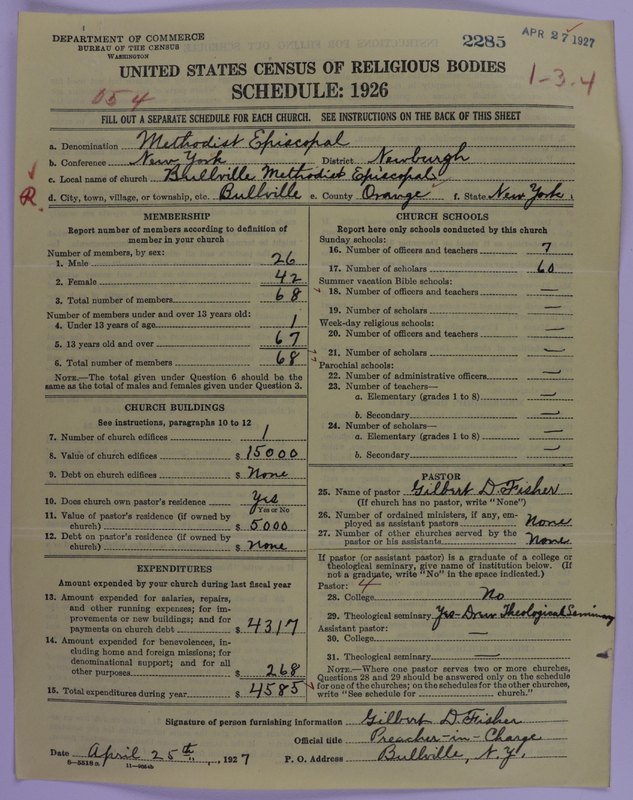 DEPARTMENT OF COMMERCE
BUREAU OF THE CENSUS
WASHINGTON
2285
APR 27 1927
UNITED STATES CENSUS OF RELIGIOUS BODIES
SCHEDULE: 1926
054
1-3-4
FILL OUT A SEPARATE SCHEDULE FOR EACH CHURCH. SEE INSTRUCTIONS ON THE BACK OF THIS SHEET
a. Denomination Methodist Episcopal
b. Conference New York District Newburgh
c. Local name of church Bullville Methodist Episcopal
R d. City, town, village, or township, etc. Bullville e. County Orange f. State New York
MEMBERSHIP
Report number of members according to definition of
member in your church
Number of members, by sex:
1. Male 26
2. Female 42
3. Total number of members 68
Number of members under and over 13 years old:
4. Under 13 years of age 1
5. 13 years old and over 67
6. Total number of members 68
NOTE.—The total given under Question 6 should be the
same as the total of males and females given under Question 3.
CHURCH BUILDINGS
See instructions, paragraphs 10 to 12
7. Number of church edifices 1
8. Value of church edifices $ 15000
9. Debt on church edifices $ None
10. Does church own pastor's residence Yes
Yes or No
11. Value of pastor's residence (if owned by
church) $ 5000
12. Debt on pastor's residence (if owned by
church) $ None
EXPENDITURES
Amount expended by your church during last fiscal year
13. Amount expended for salaries, repairs,
and other running expenses; for im-
provements or new buildings; and for
payments on church debt $ 4317
14. Amount expended for benevolences, in-
cluding home and foreign missions; for
denominational support; and for all
other purposes $ 268
15. Total expenditures during year $ 4585
CHURCH SCHOOLS
Report here only schools conducted by this church
Sunday schools:
16. Number of officers and teachers 7
17. Number of scholars 60
Summer vacation Bible schools:
18. Number of officers and teachers —
19. Number of scholars —
Week-day religious schools:
20. Number of officers and teachers —
21. Number of scholars —
Parochial schools:
22. Number of administrative officers —
23. Number of teachers—
a. Elementary (grades 1 to 8) —
b. Secondary —
24. Number of scholars—
a. Elementary (grades 1 to 8) —
b. Secondary —
PASTOR
25. Name of pastor Gilbert D. Fisher
(If church has no pastor, write "None")
26. Number of ordained ministers, if any, em-
ployed as assistant pastors None
27. Number of other churches served by the
pastor or his assistants None
If pastor (or assistant pastor) is a graduate of a college or
theological seminary, give name of institution below. (If
not a graduate, write "No" in the space indicated.)
Pastor: 4
28. College No
29. Theological seminary Yes-Drew Theological Seminary
Assistant pastor:
30. College —
31. Theological seminary —
NOTE.—Where one pastor serves two or more churches,
Questions 28 and 29 should be answered only on the schedule
for one of the churches; on the schedules for the other churches,
write "See schedule for church."
Signature of person furnishing information Gilbert D. Fisher
Official title Preacher-in-Charge
Date April 25th, 1927 P. O. Address Bullville, N.Y.